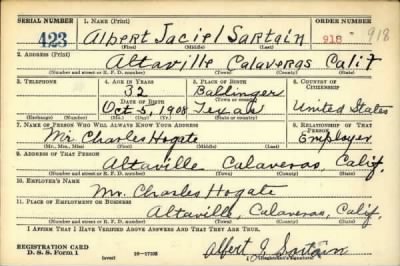 SERIAL NUMBER 1. NAME (Print) ORDER NUMBER
423 Albert Jaciel Sartain 918 918
(First) (Middle) (Last)
2. ADDRESS (Print)
Altaville Calaveras Calif
(Number and street or R. F. D. number) (Town) (County) (State)
3. TELEPHONE 4. AGE IN YEARS 5. PLACE OF BIRTH 6. COUNTRY OF CITIZENSHIP
32 Ballinger
DATE OF BIRTH (Town or county)
Oct 5, 1908 Texas United States
(Exchange) (Number) (Mo.) (Day) (Yr.) (State or country)
7. NAME OF PERSON WHO WILL ALWAYS KNOW YOUR ADDRESS 8. RELATIONSHIP OF THAT PERSON
Mr Charles Hogate Employer
(Mr., Mrs., Miss) (First) (Middle) (Last)
9. ADDRESS OF THAT PERSON
Altaville, Calaveras, Calif.
(Number and street or R. F. D. number) (Town) (County) (State)
10. EMPLOYER'S NAME
Mr. Charles Hogate
11. PLACE OF EMPLOYMENT OR BUSINESS
Altaville, Calaveras, Calif.
(Number and street or R. F. D. number) (Town) (County) (State)
I AFFIRM THAT I HAVE VERIFIED ABOVE ANSWERS AND THAT THEY ARE TRUE.
REGISTRATION CARD
D. S. S. Form 1 (over) 16—17105 Albert J. Sartain
(Registrant's signature)